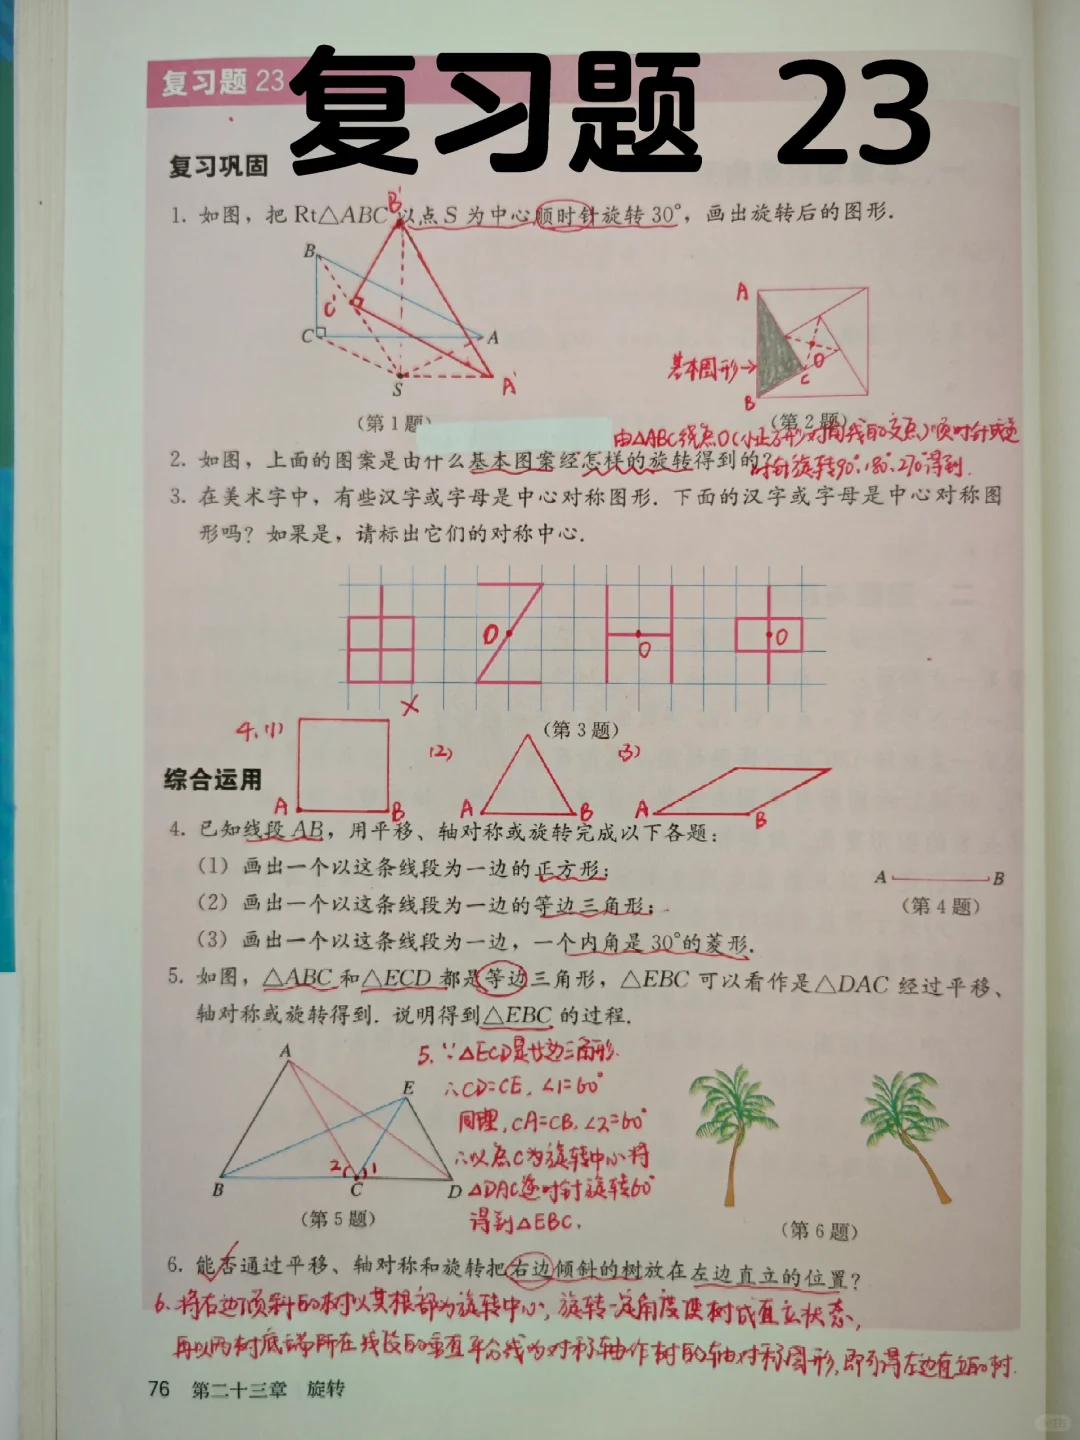 复习题 23
复习题 23
复习巩固
1. 如图，把 Rt△ABC 以点 S 为中心顺时针旋转 30°，画出旋转后的图形.
B'
B
C'
C
A
S
A'
（第 1 题）
A
基本图形→
O
C
B
（第 2 题）
由△ABC绕点O(小正方形对角线的交点)顺时针或逆
时针旋转90°、180°、270°得到.
2. 如图，上面的图案是由什么基本图案经怎样的旋转得到的？
3. 在美术字中，有些汉字或字母是中心对称图形. 下面的汉字或字母是中心对称图
形吗？如果是，请标出它们的对称中心.
O
O
O
×
（第 3 题）
4.(1)
(2)
(3)
A B
A B
A B
综合运用
4. 已知线段 AB，用平移、轴对称或旋转完成以下各题：
（1）画出一个以这条线段为一边的正方形；
（2）画出一个以这条线段为一边的等边三角形；
（3）画出一个以这条线段为一边，一个内角是 30°的菱形.
A B
（第 4 题）
5. 如图，△ABC 和△ECD 都是等边三角形，△EBC 可以看作是△DAC 经过平移、
轴对称或旋转得到. 说明得到△EBC 的过程.
A
E
2 1
B C D
（第 5 题）
5. ∵△ECD是等边三角形.
∴CD=CE, ∠1=60°
同理, CA=CB, ∠2=60°
∴以点C为旋转中心将
△DAC逆时针旋转60°
得到△EBC.
（第 6 题）
6. 能否通过平移、轴对称和旋转把右边倾斜的树放在左边直立的位置？
6. 将右边倾斜的树以其根部为旋转中心, 旋转一定角度使树成直立状态,
再以两树底端所在线段的垂直平分线为对称轴作树的轴对称图形, 即可得左边直立的树.
76 第二十三章 旋转